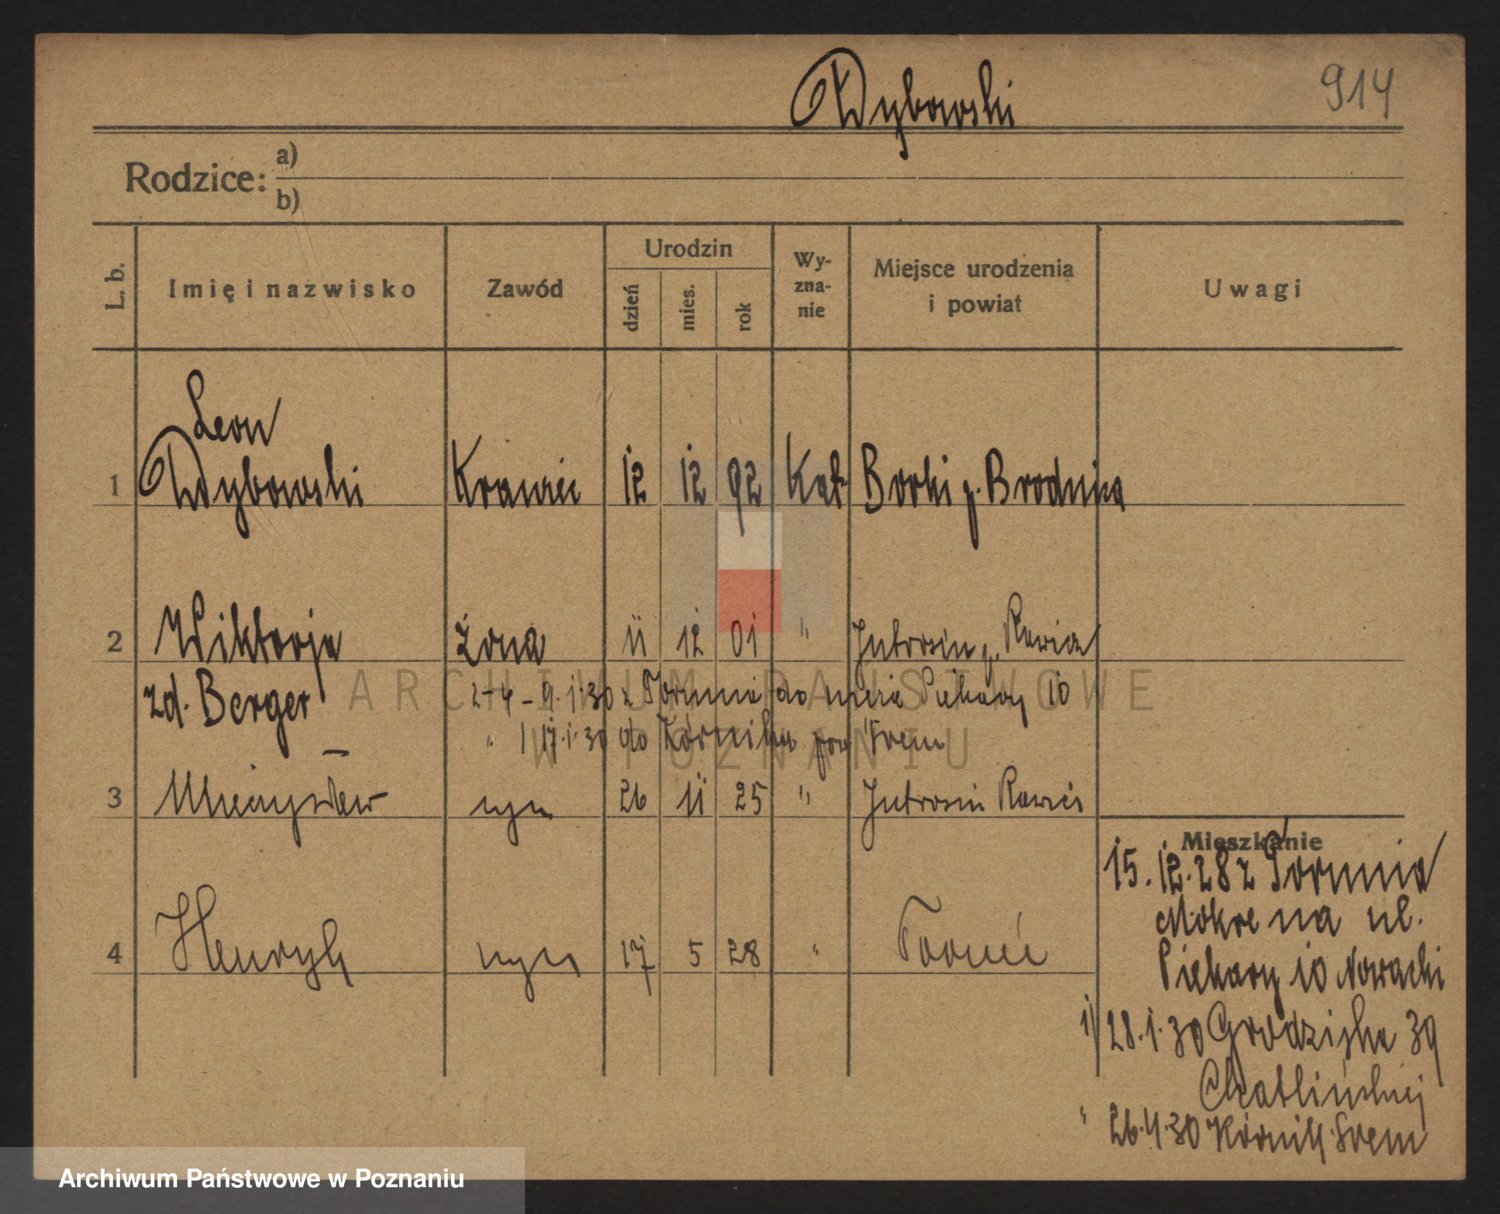 Wybowski 914
Rodzice: a)
b)
L. b. Imię i nazwisko Zawód Urodzin dzień mies. rok Wy-zna-nie Miejsce urodzenia i powiat Uwagi
Leon
1 Wybowski Krawiec 12 12 92 Kat Borki p. Brodnica
2 Wiktorja żona 11 12 01 " Jutrosin p. Rawicz
zd. Berger 2-4 - 9.1.30 z Torunia do Piekary 10
" 17.1.30 do Kórnika pow Śrem
3 Mieczysław syn 26 11 25 " Jutrosin Rawicz
Mieszkanie
15.12.28 z Torunia
Mokre na ul.
4 Henryk syn 17 5 28 " Toruń
Piekary 10 Nowacki
1) 28.1.30 Grodziska 39
" 26.4.30 Kórnik Śrem
ARCHIWUM PAŃSTWOWE
W POZNANIU
Archiwum Państwowe w Poznaniu